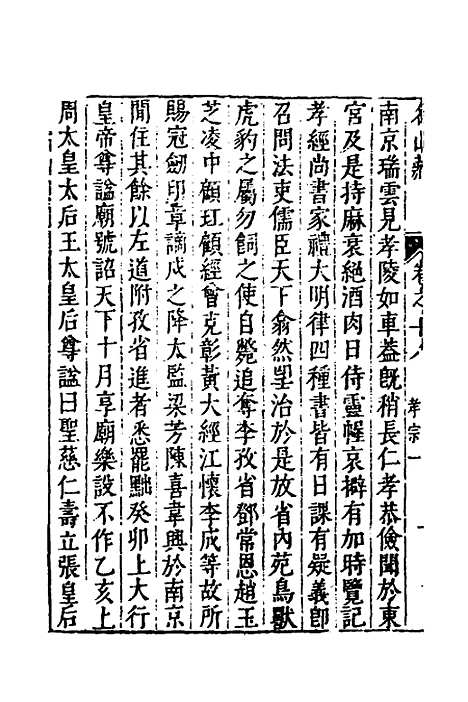 名山藏
卷之十八
孝宗一
南京瑞雲見孝陵如車葢旣稍長仁孝恭儉聞於東
宮及是持麻衰絕酒肉日侍靈幄哀擗有加時覽記
孝經尚書家禮大明律四種書皆有日課有疑義卽
召問法吏儒臣天下翕然朢治於是放省內苑鳥獸
虎豹之屬勿飼之使自斃追奪李孜省鄧常恩趙玉
芝凌中顧玒顧經曾克彰黃大經江懷李成等故所
賜冠劒印章謫戍之降太監梁芳陳喜韋興於南京
閒住其餘以左道附孜省進者悉罷黜癸卯上大行
皇帝尊諡廟號詔天下十月享廟樂設不作乙亥上
周太皇太后王太皇后尊諡曰聖慈仁壽立張皇后